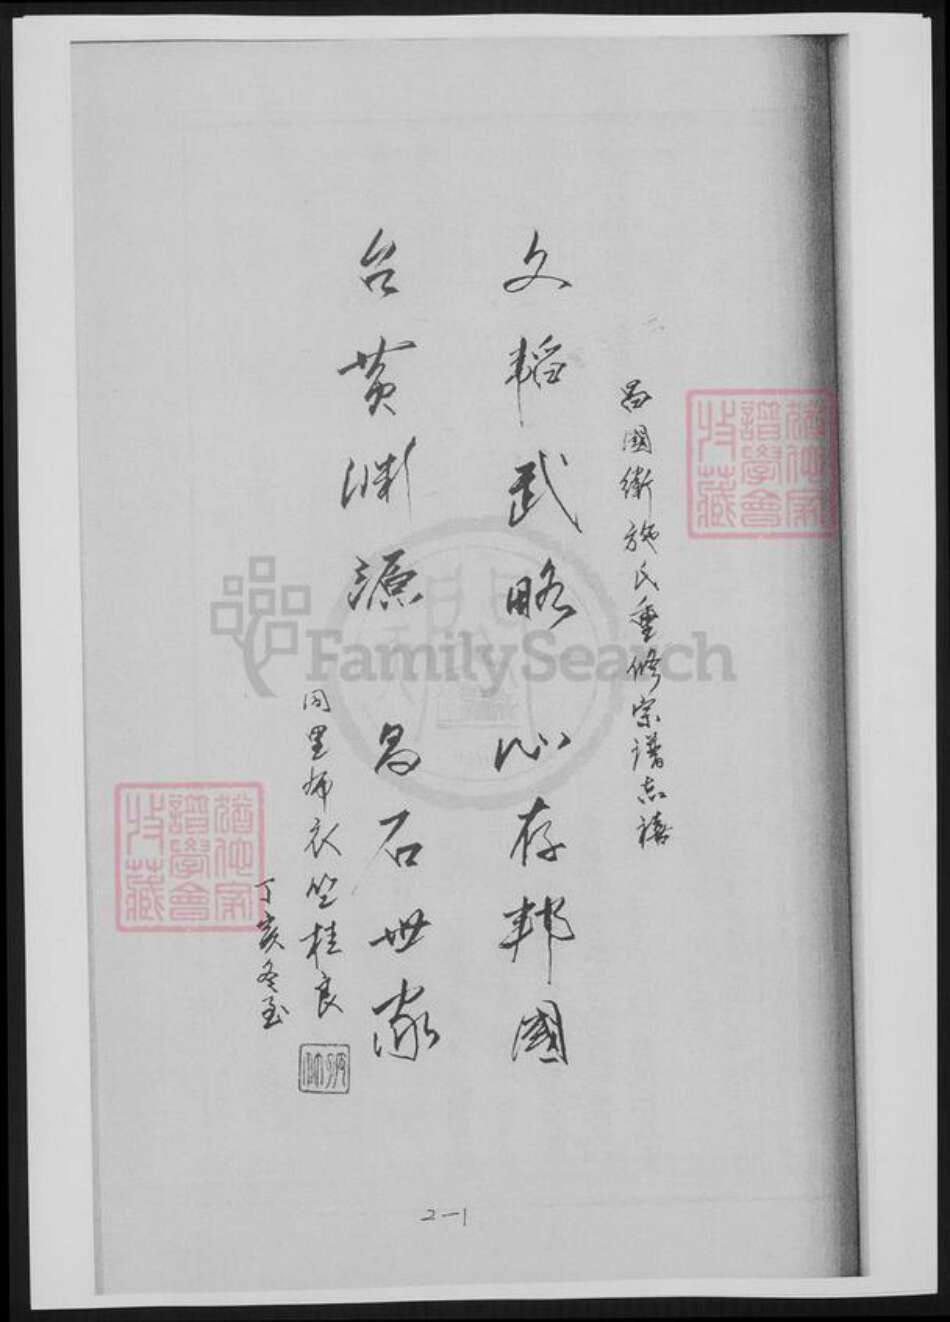 昌國衛施氏重修宗譜志禧
文韜武略 心存邦國
台黄渊源 昌石世家
同里布衣竺桂良
丁亥冬至
譜學會
收藏
譜學會
收藏
FamilySearch
2-1